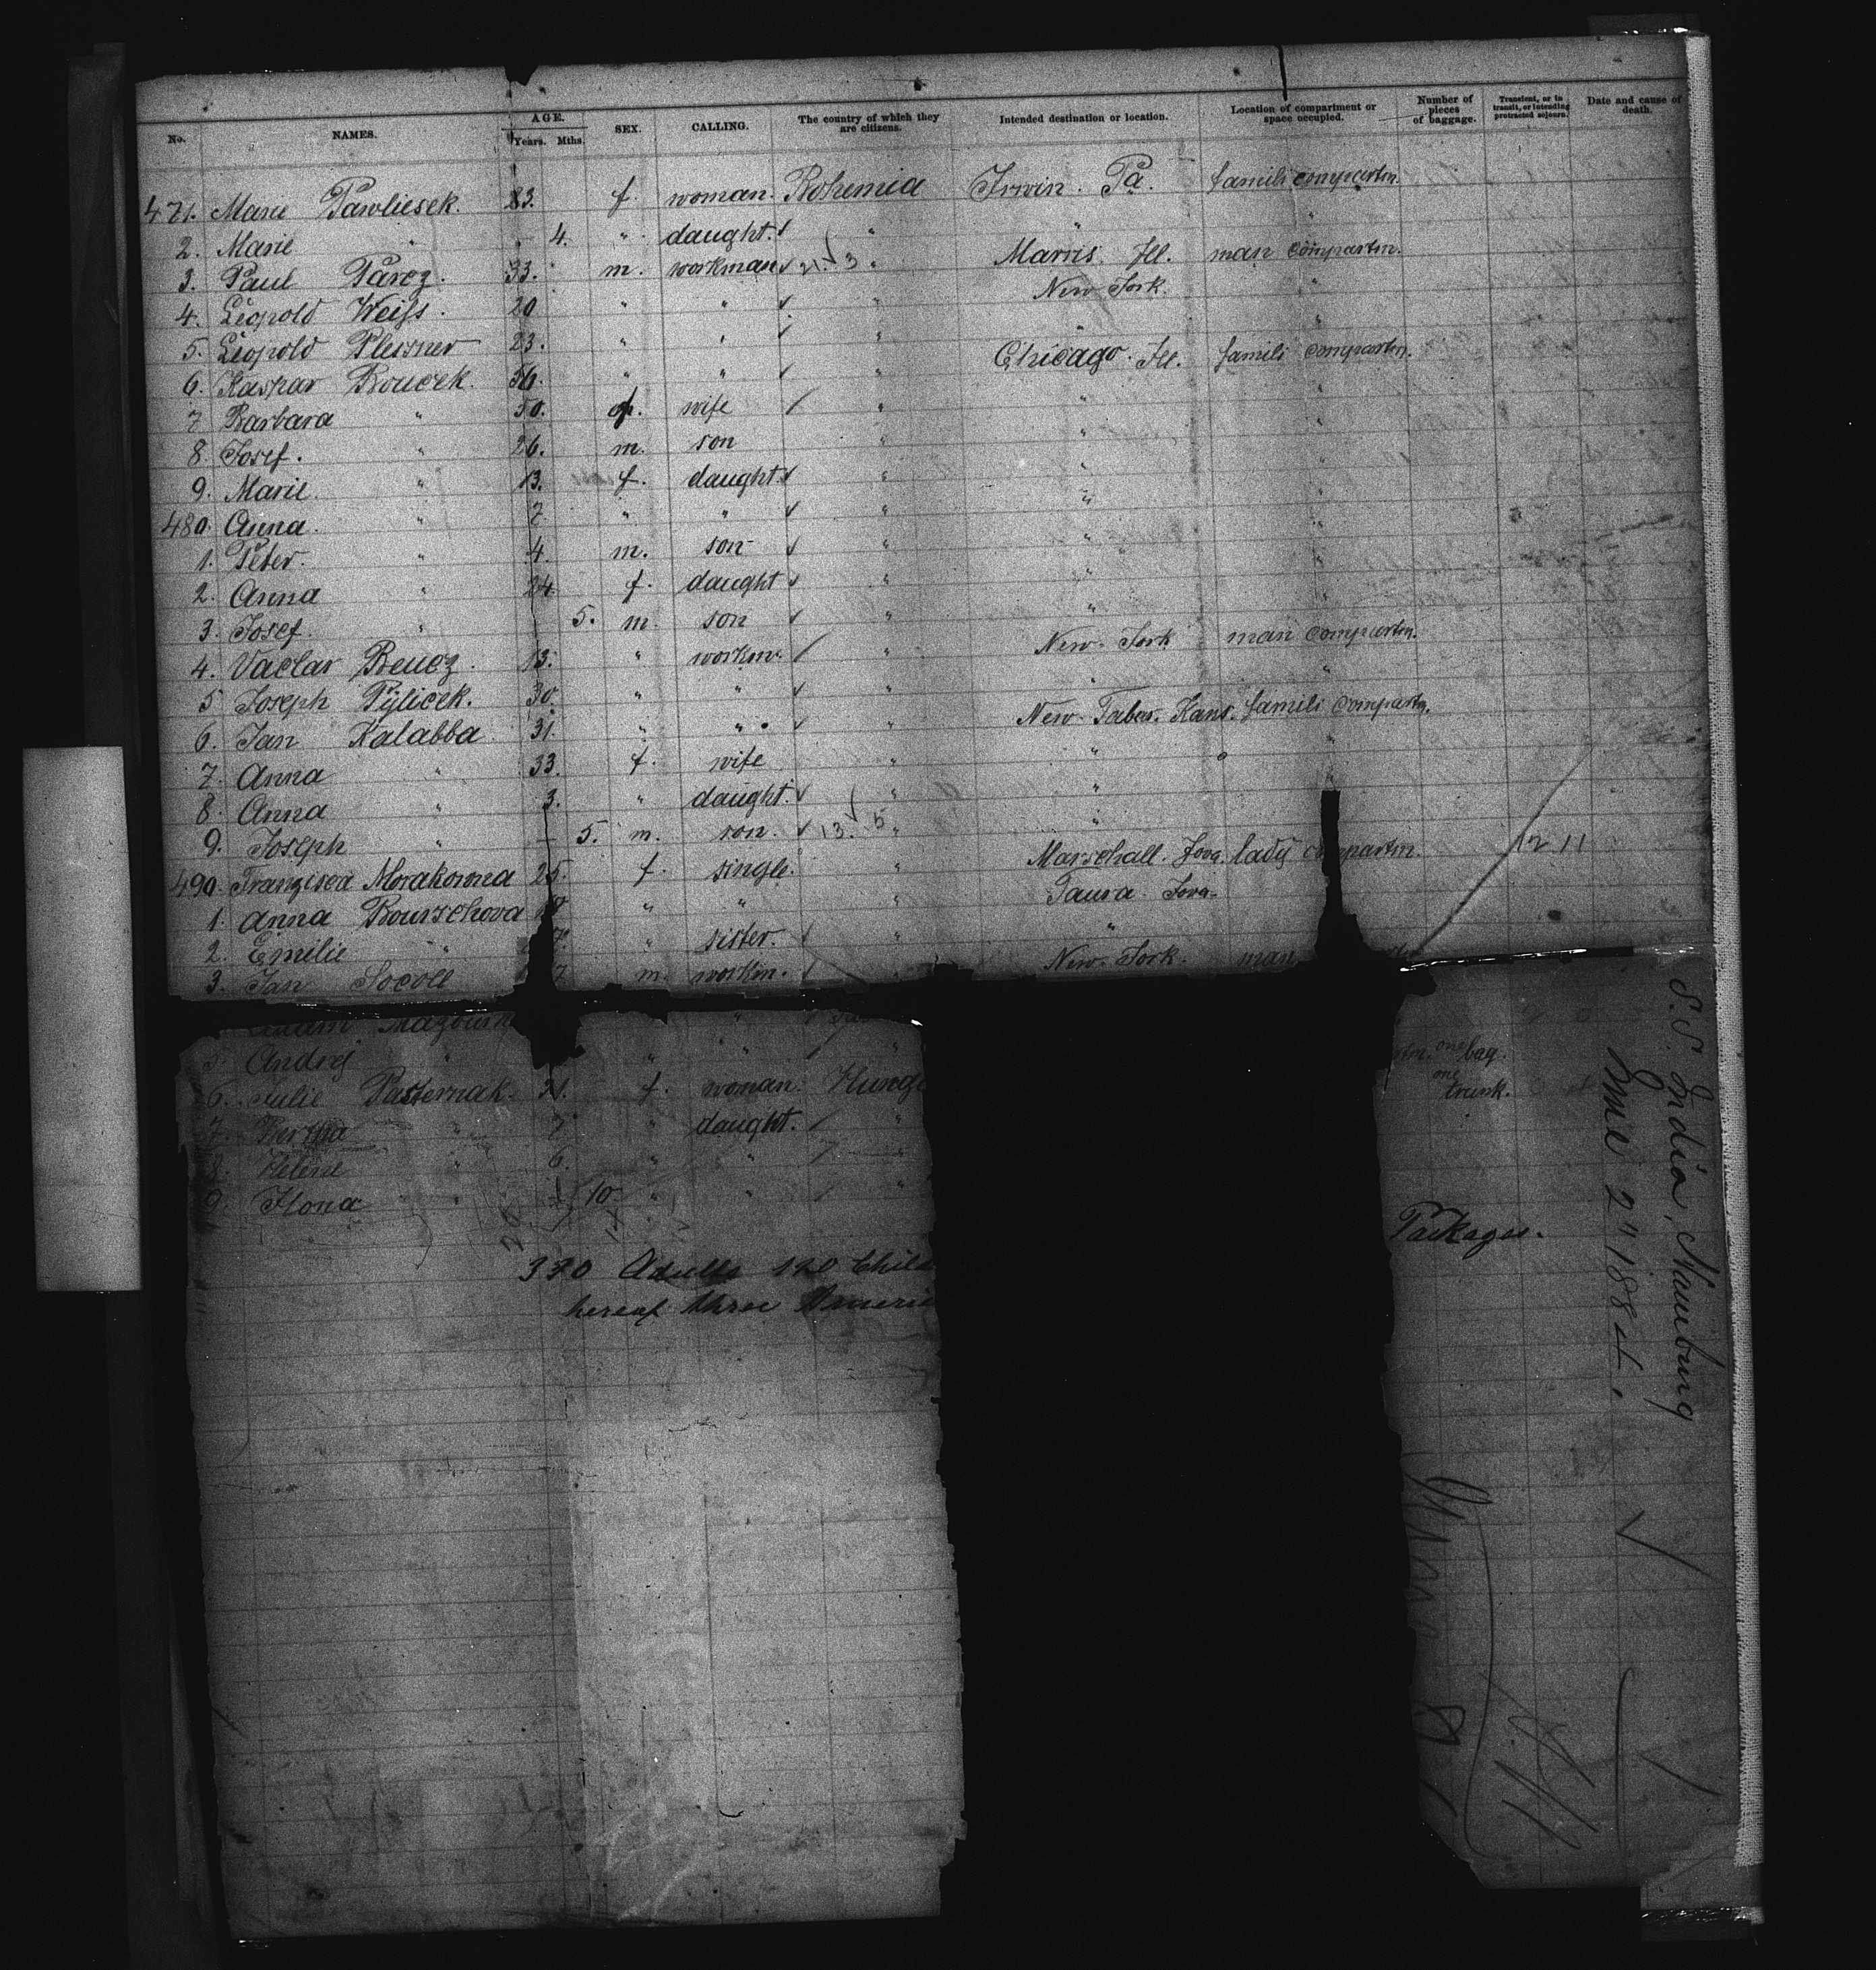 No. NAMES. AGE. Years. Mths. SEX. CALLING. The country of which they are citizens. Intended destination or location. Location of compartment or space occupied. Number of pieces of baggage. Transient, or in transit, or intending protracted sojourn. Date and cause of death.
471. Marie Pawliesek. 33. f. woman. Bohemia Irwin. Pa. famili compartm.
2. Marie " 4. " daught. " "
3. Paul Parez. 33. m. workman 21. 3 " Marris. Ill. man compartm.
4. Leopold Weiss. 20 " " " New York. "
5. Leopold Plessner 23. " " " "
6. Kaspar Boucek. 56. " " " Chicago. Ill. famili compartm.
7 Barbara " 50. f. wife " " "
8. Josef. " 26. m. son " " "
9. Marie. " 13. f. daught. " " "
480. Anna. " 7. " " " " "
1. Peter. " 4. m. son " " "
2. Anna " 24. f. daught " " "
3. Josef. " 5. m. son " " "
4. Vaclav Beucz. 13. " workm. " New York man compartm.
5 Joseph Pylicek. 30. " " " " "
6. Jan Kalabba 31. " " " New Tabor. Kans. famili compartm.
7. Anna " 33. f. wife " " "
8. Anna " 3. " daught. " " "
9. Joseph " 5. m. son. 13. 5 " "
490. Franzisca Morakowna 25. f. single. " Marschall. Iova. lady compartm. 12 11
1. Anna Bourschova " " " Taura. Iova.
2. Emilie " " sister. " "
3. Jan Socoll m. workm. " New York. man
Adam "
5. Andrej " " " "
6. Julie Pasternak. 31. f. woman. Hung one bag.
one trunk.
7. Bertha " 7. " daught. "
8. Helene " 6. " " "
9. Ilona " 10 " " "
Packages.
330 Adults 120 Child
hereof three Americ
S.S. India, Hamburg
June 2" 1884.